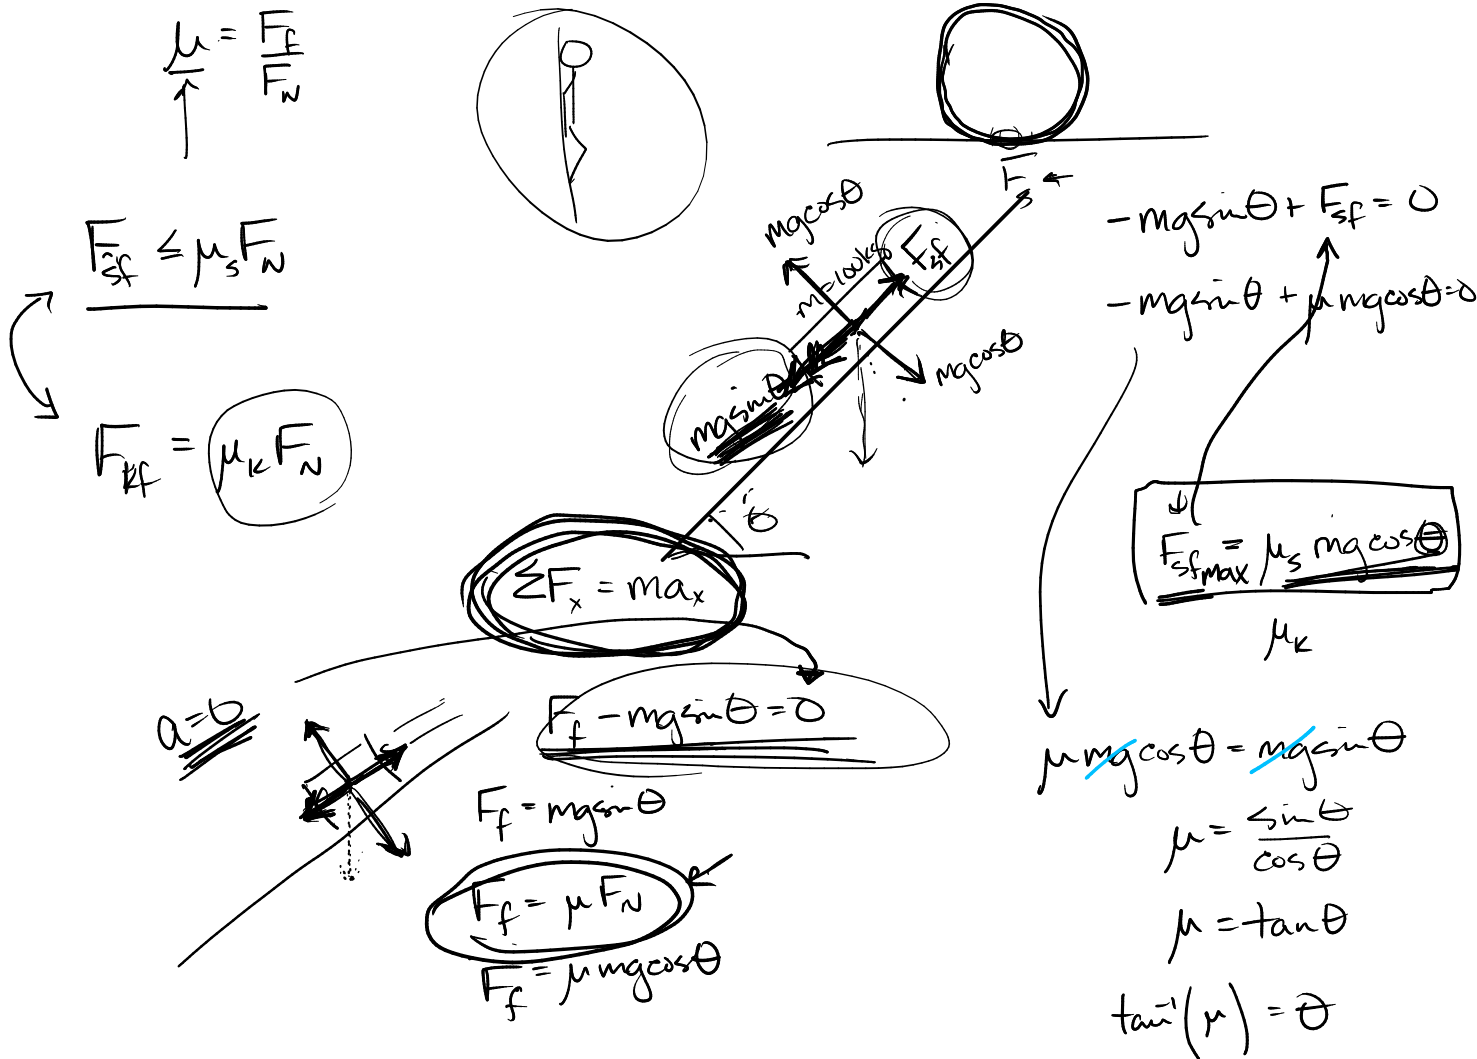 μ = F_f / F_N
F_sf ≤ μ_s F_N
F_kf = μ_k F_N
mg cosθ
m=100kg
F_sf
mg sinθ
mg cosθ
θ
F
-mg sinθ + F_sf = 0
-mg sinθ + μ mg cosθ = 0
F_sf max = μ_s mg cosθ
μ_k
ΣF_x = ma_x
a=0
F_f - mg sinθ = 0
F_f = mg sinθ
F_f = μ F_N
F_f = μ mg cosθ
μ mg cosθ = mg sinθ
μ = sinθ / cosθ
μ = tanθ
tan⁻¹(μ) = θ